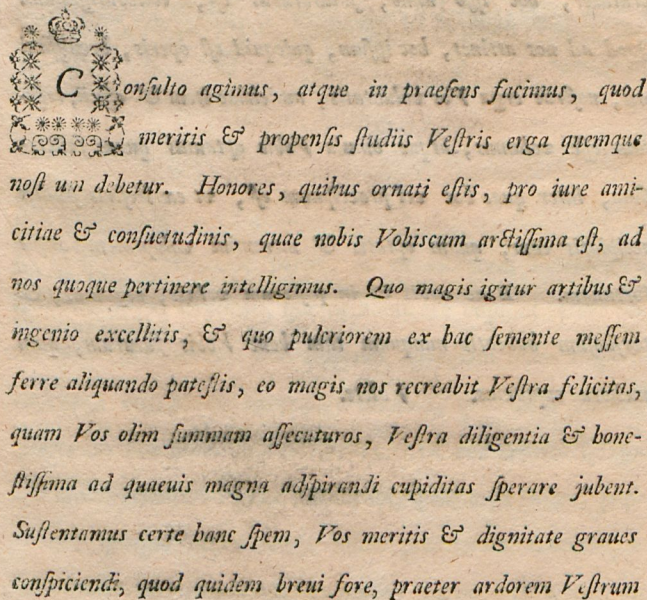 Conſulto agimus, atque in praeſens facimus, quod
meritis & propenſis ſtudiis Veſtris erga quemque
noſt um debetur. Honores, quibus ornati eſtis, pro iure ami-
citiae & conſuetudinis, quae nobis Vobiscum arctiſſima eſt, ad
nos quoque pertinere intelligimus. Quo magis igitur artibus &
ingenio excellitis, & quo pulcriorem ex hac ſemente meſſem
ferre aliquando poteſtis, eo magis nos recreabit Veſtra felicitas,
quam Vos olim ſummam aſſecuturos, Veſtra diligentia & hone-
ſtiſſima ad quaeuis magna adſpirandi cupiditas ſperare jubent.
Suſtentamus certe hanc ſpem, Vos meritis & dignitate graues
conſpiciendi, quod quidem breui fore, praeter ardorem Veſtrum